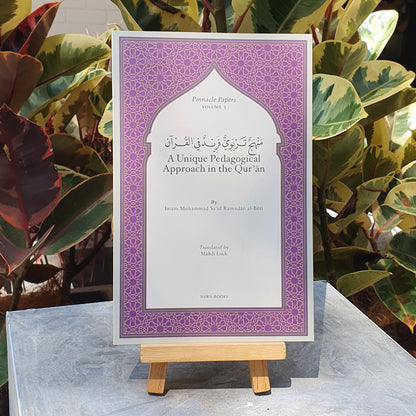 Pinnacle Papers
VOLUME 3
منهج تربوي فريد في القرآن
A Unique Pedagogical
Approach in the Qurʾān
By
Imam Muhammad Saʿīd Ramaḍān al-Būṭī
Translated by
Mahdi Lock
NAWA BOOKS